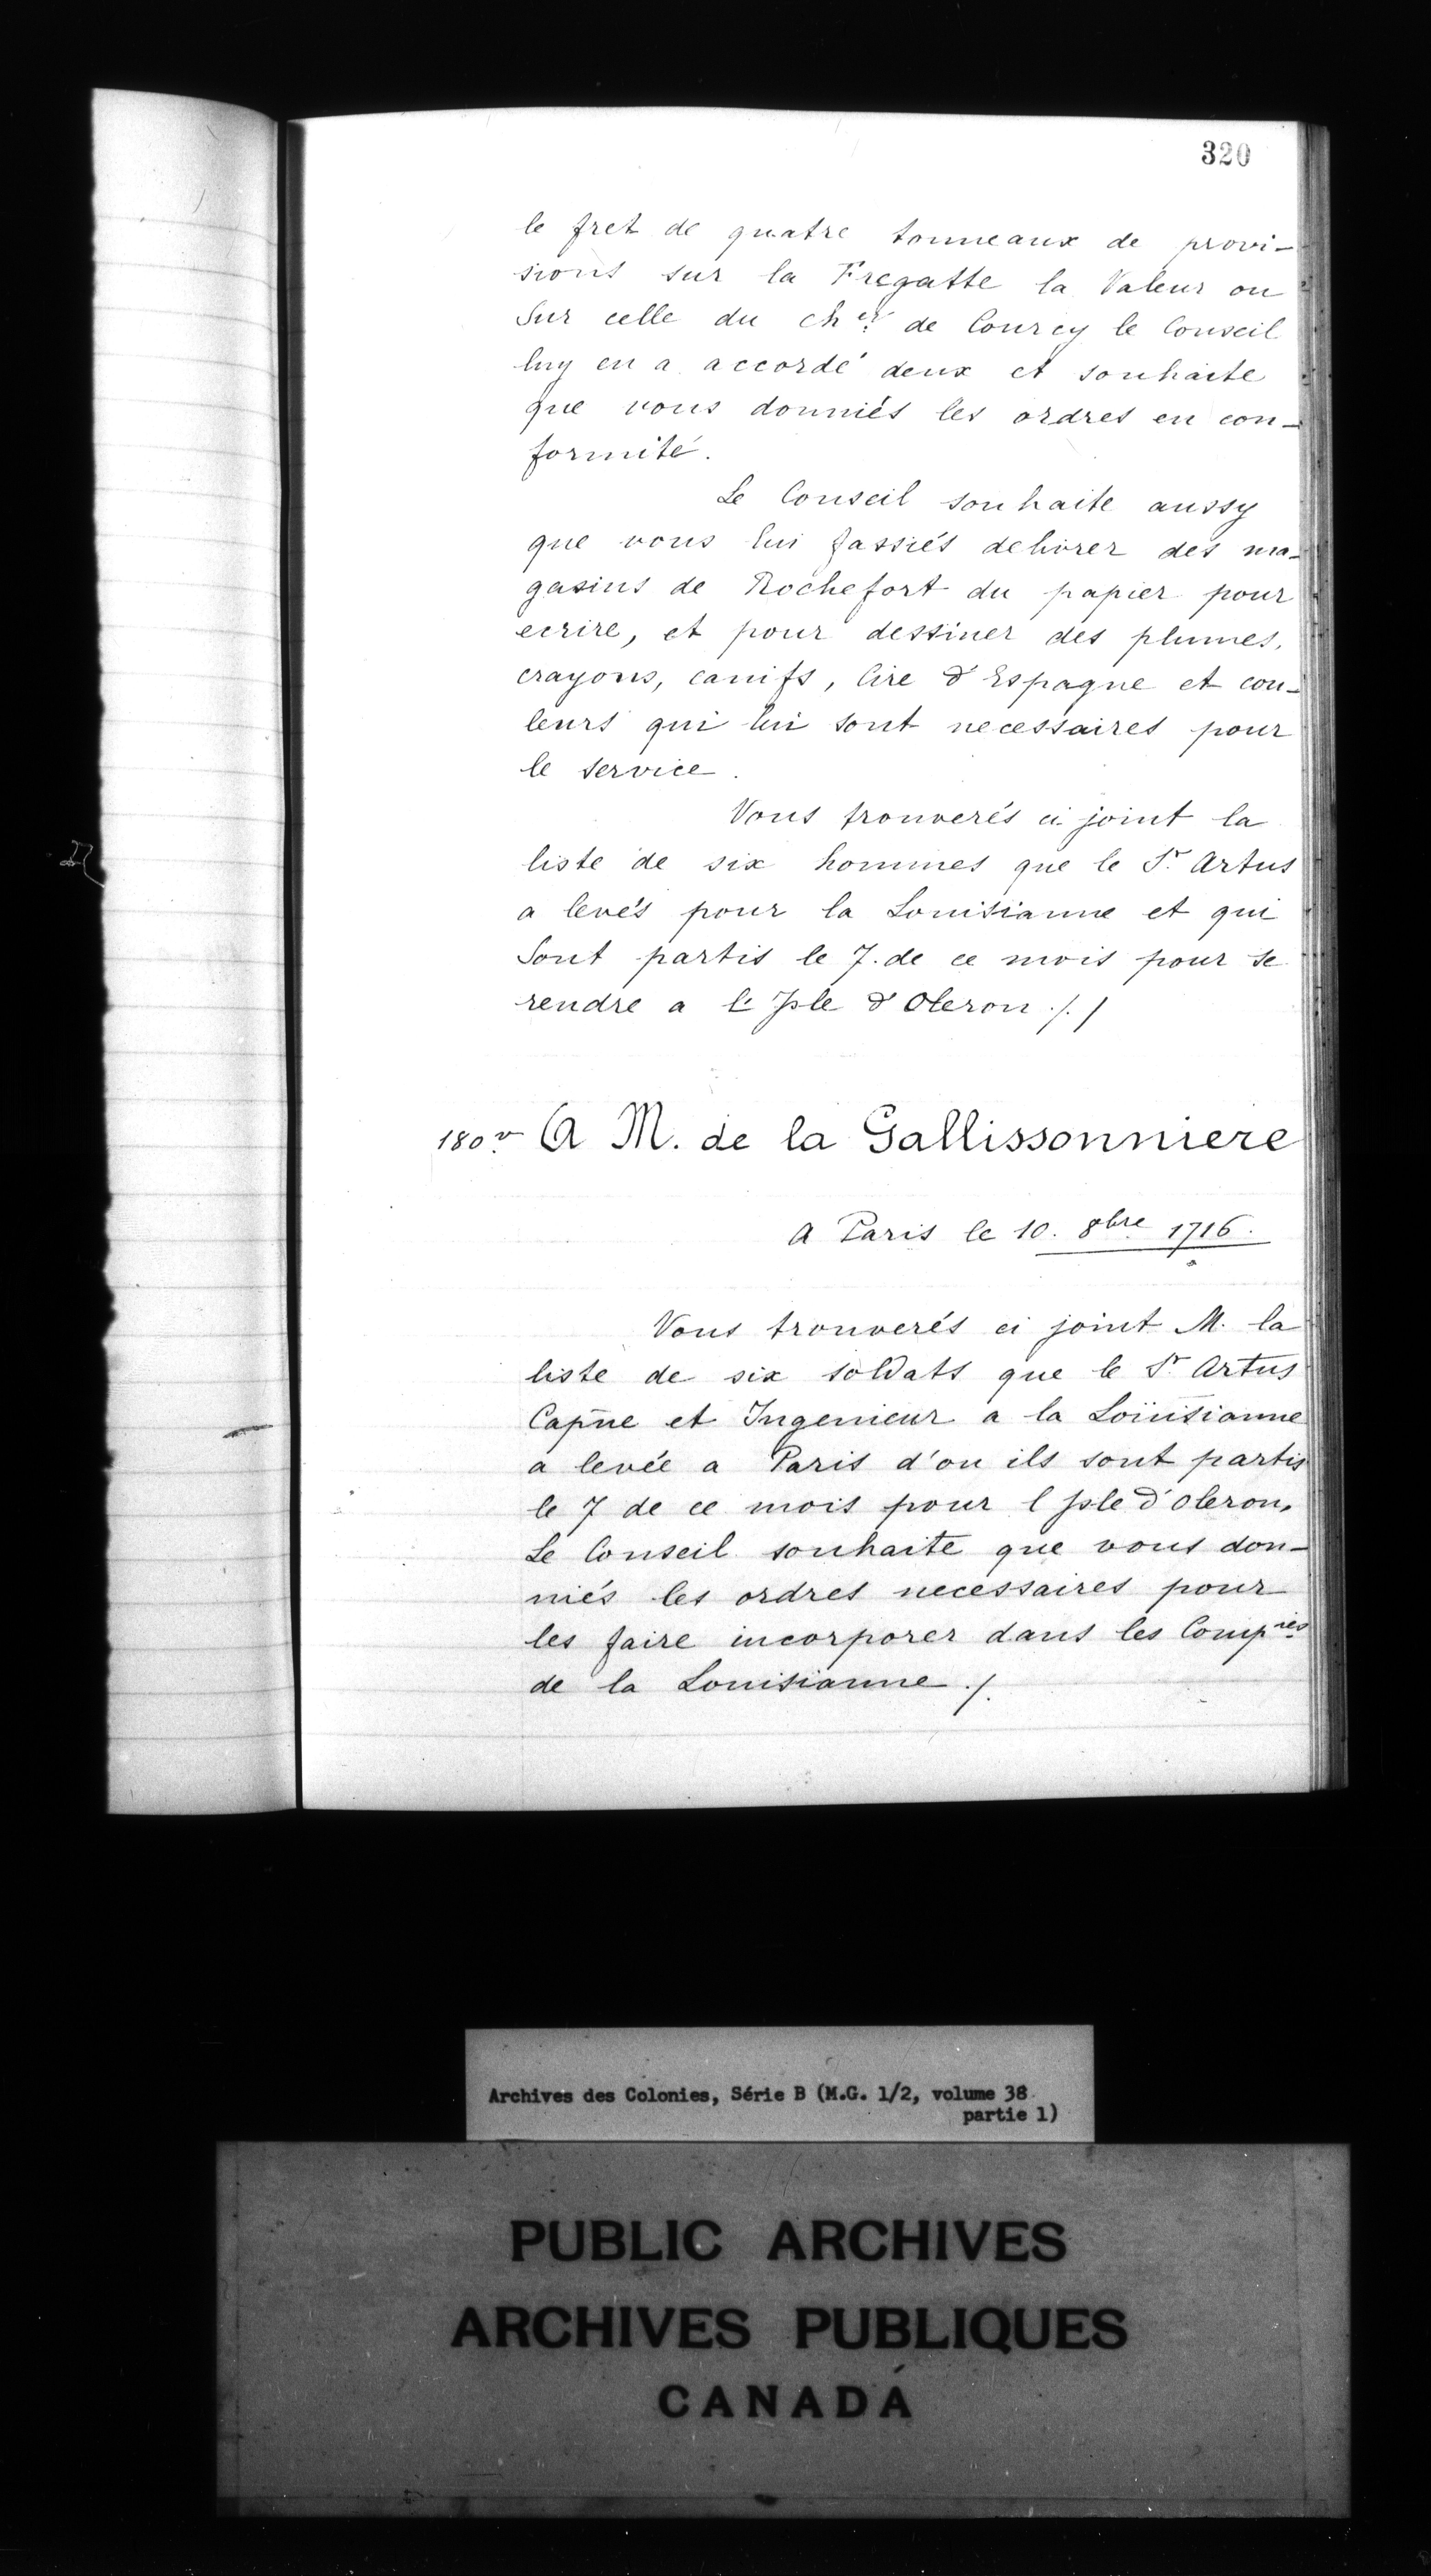 320
le fret de quatre tonneaux de provi-
sions sur la Fregatte la Valeur ou
Sur celle du cher. de Courcy le Conseil
luy en a accordé deux et souhaite
que vous donniés les ordres en con-
formité.
Le Conseil souhaite aussy
que vous lui fassiés delivrer des ma-
gasins de Rochefort du papier pour
ecrire, et pour dessiner des plumes,
crayons, canifs, Cire d'Espagne et cou-
leurs qui lui sont necessaires pour
le service.
Vous trouverés ci joint la
liste de six hommes que le Sr. Artus
a levés pour la Louisianne et qui
Sont partis le 7. de ce mois pour se
rendre a l'Isle d'Oleron ./. /
180 v. A M. de la Gallissonniere
A Paris le 10. 8bre 1716.
Vous trouverés ci joint M. la
liste de six soldats que le Sr Artus
Capne et Ingenieur a la Loüisianne
a levée a Paris d'ou ils sont partis
le 7 de ce mois pour l Isle d'oleron,
Le Conseil souhaite que vous don-
niés les ordres necessaires pour
les faire incorporer dans les Compies
de la Louisianne ./.
Archives des Colonies, Série B (M.G. 1/2, volume 38
partie 1)
PUBLIC ARCHIVES
ARCHIVES PUBLIQUES
CANADA